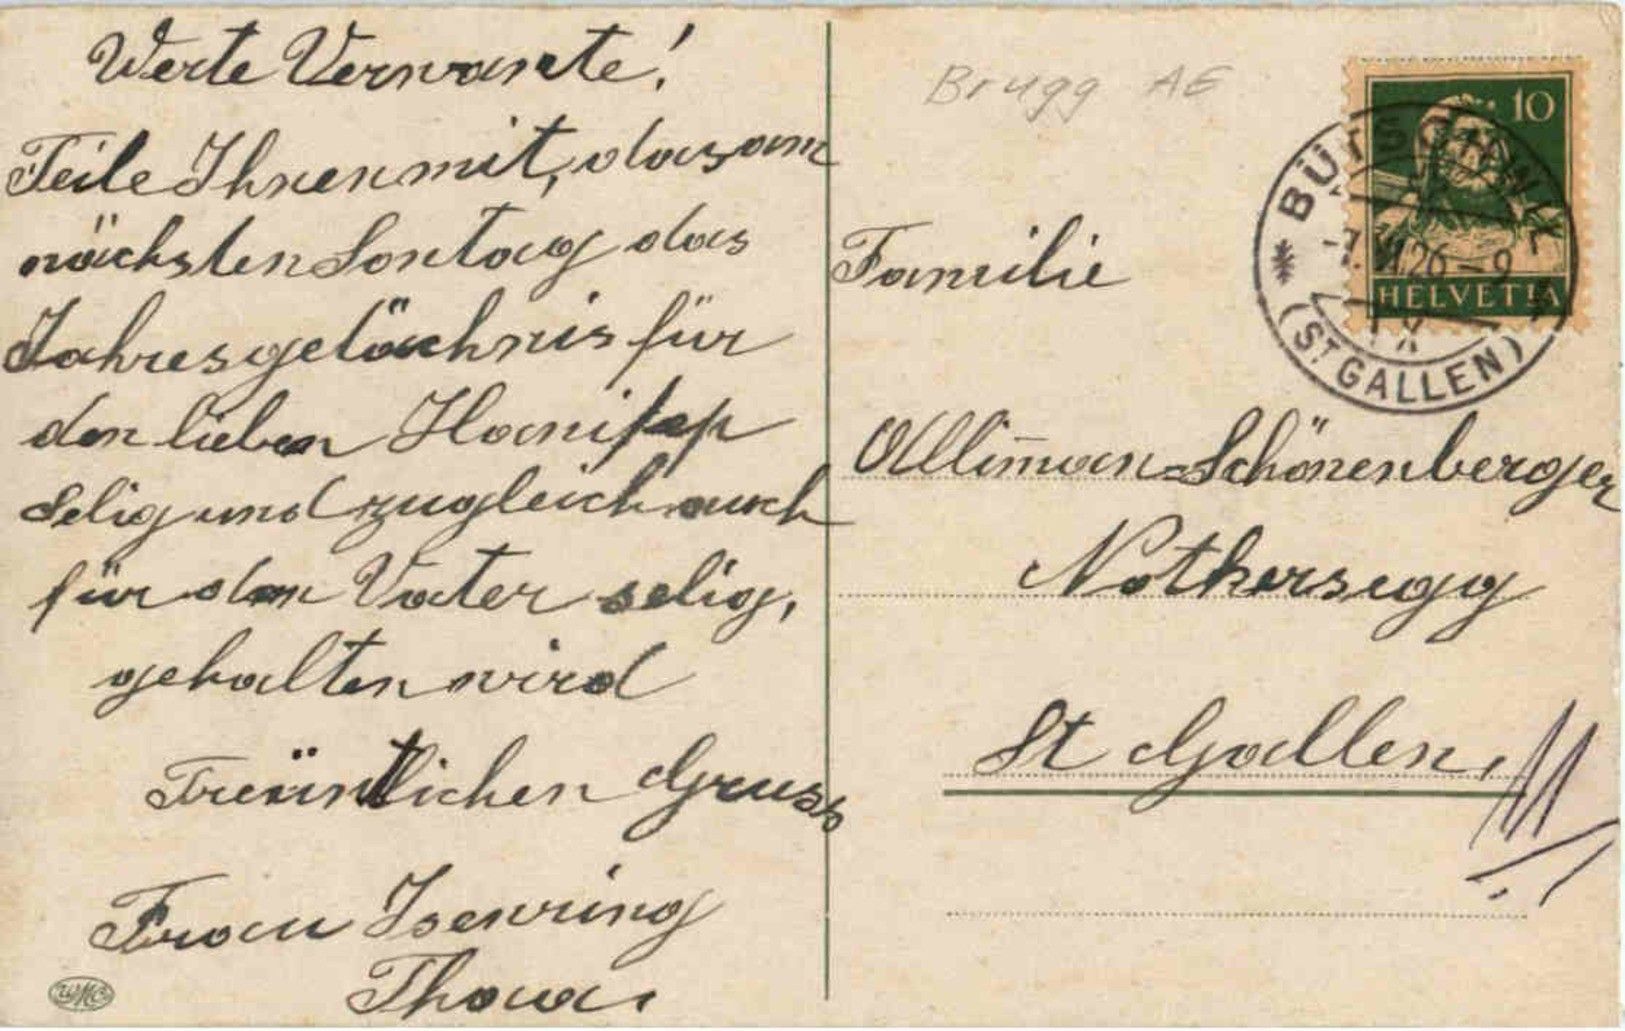 Werte Verwante!
Teile Ihnen mit, das am
nächsten Sontag das
Jahresgetächnis für
den lieben Hanisep
selig und zugleich auch
für den Vater selig,
gehalten wird
Freüntlichen Gruss
Frau Isenring
Thowa.
WMB
Brugg AE
10
HELVETIA
BÜTSCHWIL
26-9
(ST GALLEN)
Familie
Allim̅an-Schönenberger
Nothkersegg
St Gallen.